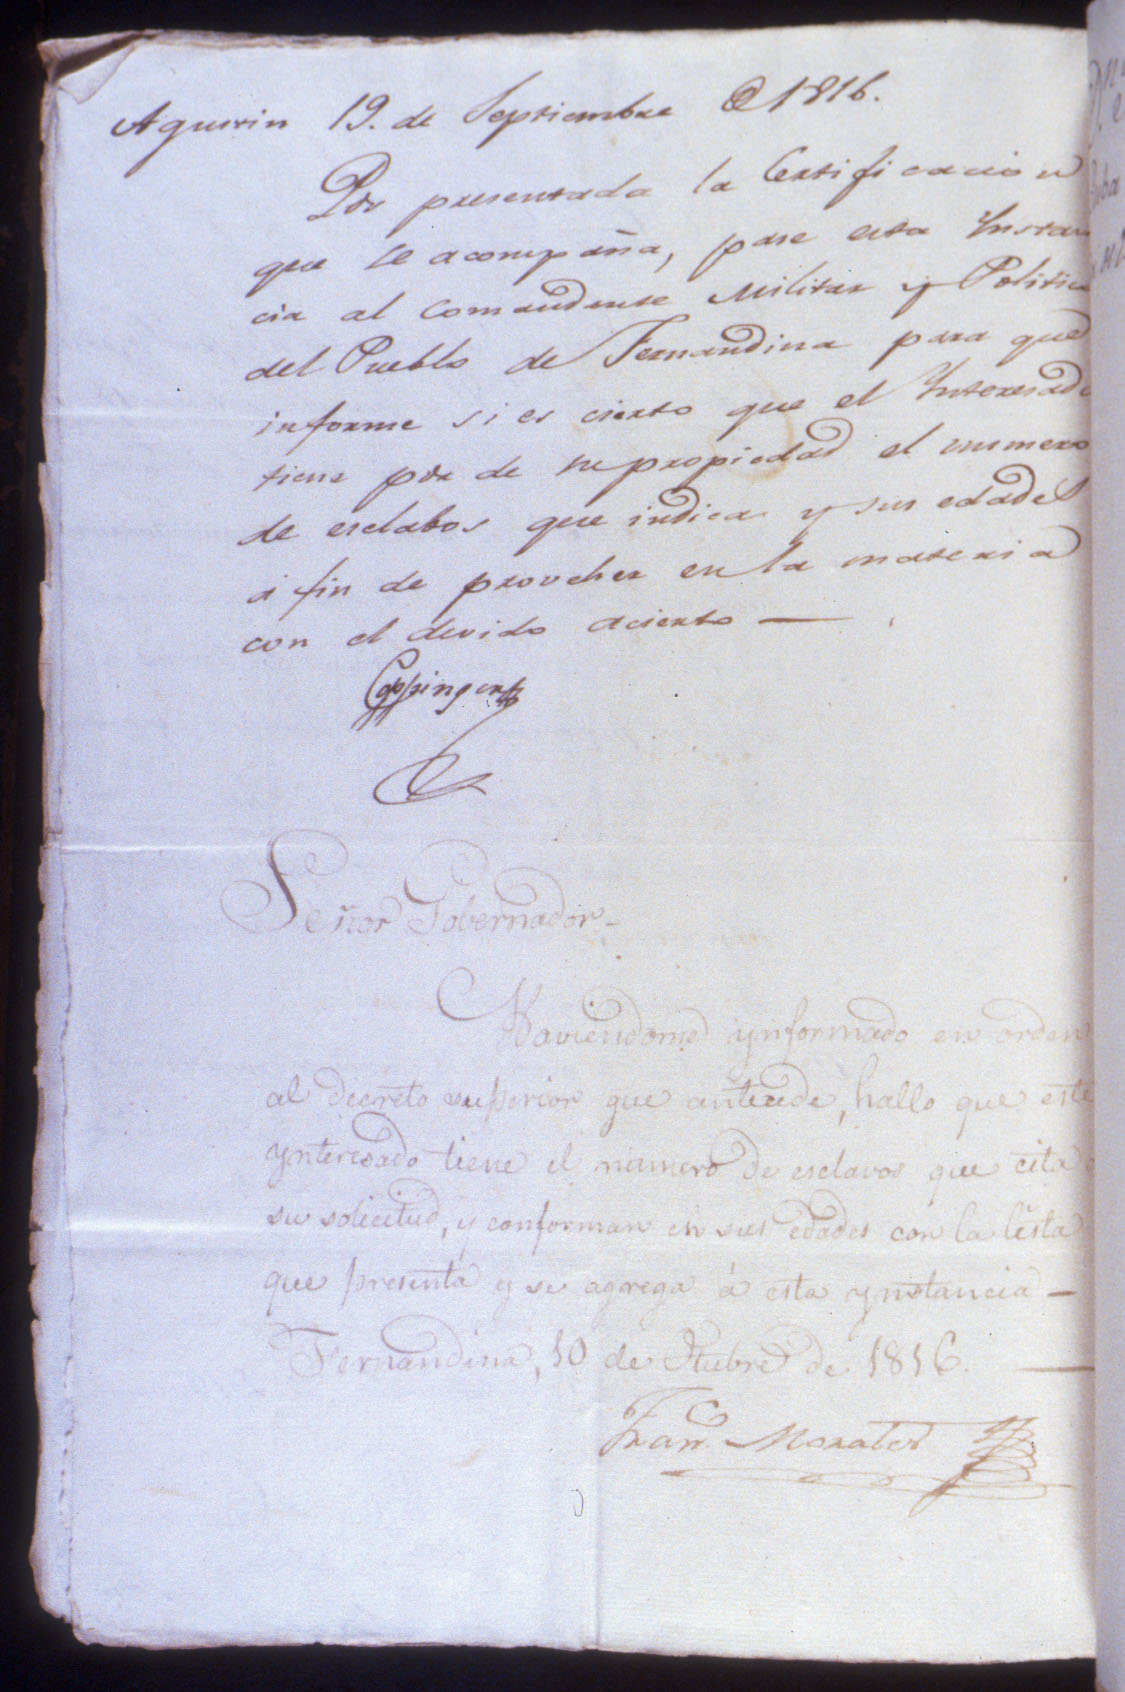 Agustin 19. de Septiembre D 1816.
Por presentada la Certificacion
que se acompaña, pase esta Instan
cia al Comandante Militar y Politico
del Pueblo de Fernandina para que
informe si es cierto que el Interesado
tiene por de su propiedad el numero
de esclabos que indica y sus edades
á fin de proveher en la materia
con el devido acierto —
Coppinger
Señor Gobernador-
Haviendome ynformado en orden
al decreto superior que antecede, hallo que este
ynteresado tiene el numero de esclavos que cita
su solicitud, y conforman en sus edades con la lista
que presenta y se agrega á esta ynstancia —
Fernandina, 10 de Otubre de 1816. —
Fran.co Morales